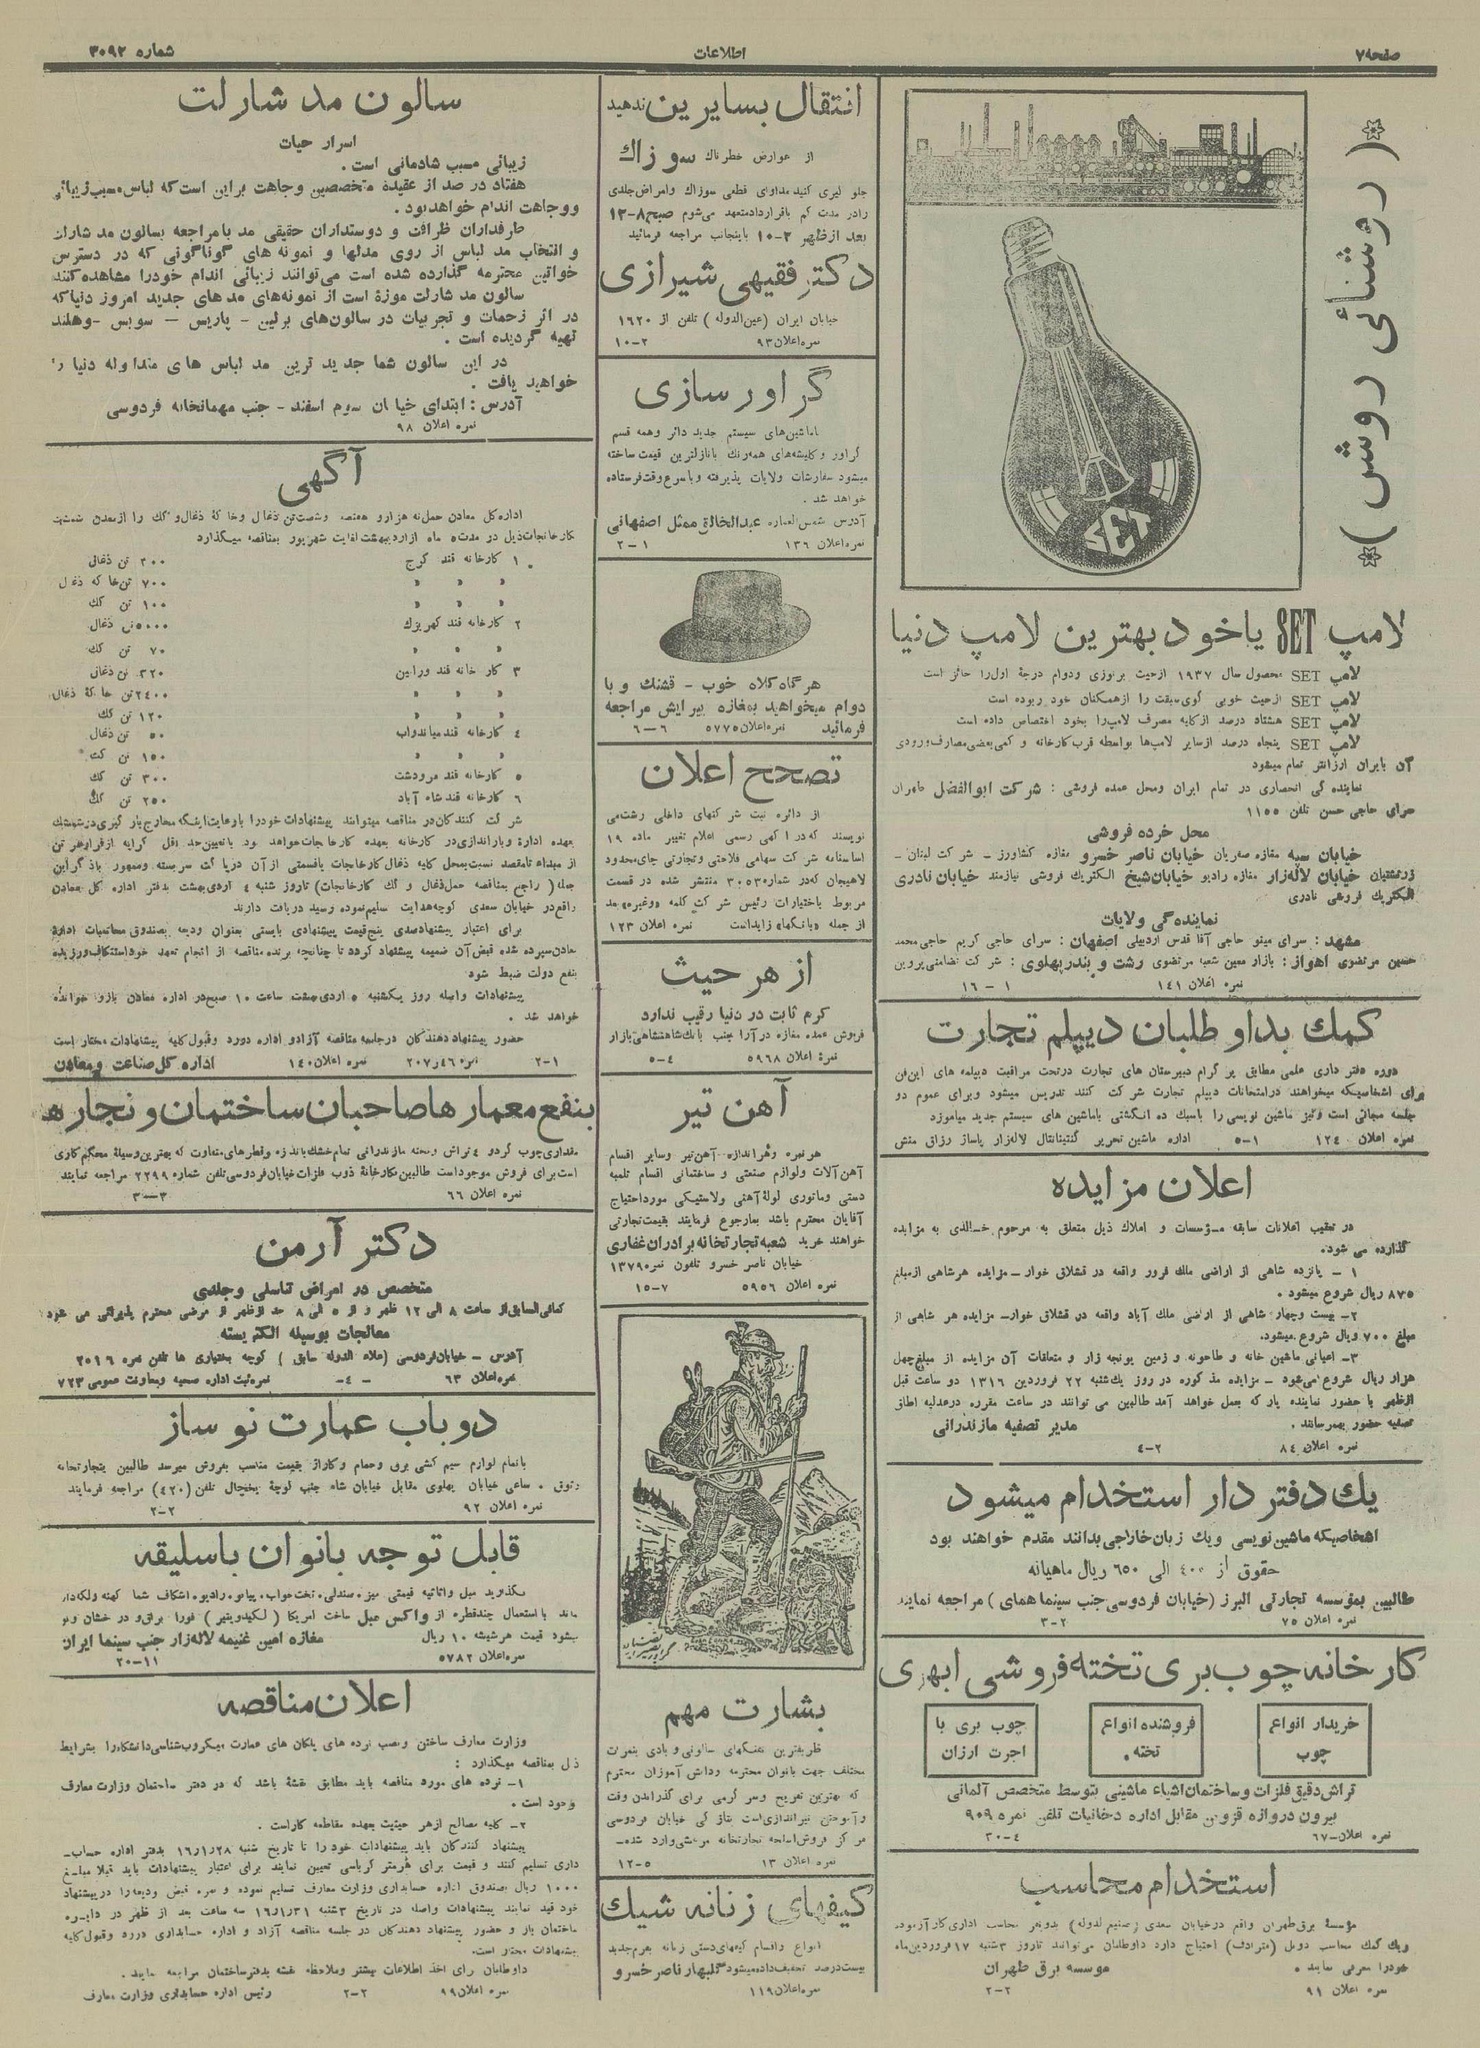 صفحه ۷
اطلاعات
شماره ۳۰۹۲
(روشنائی روش)
SET
لامپ SET یا خود بهترین لامپ دنیا
لامپ SET محصول سال ۱۹۳۷ از حیث پرنوری و دوام درجهٔ اول را حائز است
لامپ SET از حیث خوبی گوی سبقت را از همکنان خود ربوده است
لامپ SET هشتاد درصد از کلیه مصرف لامپ را بخود اختصاص داده است
لامپ SET پنجاه درصد از سایر لامپ‌ها بواسطه قرب کارخانه و کمی بعضی مصارف ورودی
آن بایران ارزانتر تمام میشود
نماینده گی انحصاری در تمام ایران ومحل عمده فروشی : شرکت ابوالفضل طهران
سرای حاجی حسن تلفن ۱۱۵۵
محل خرده فروشی
خیابان سپه مغازه صفریان خیابان ناصر خسرو مغازه کشاورز ـ شرکت لبنان ـ
زرتشتیان خیابان لاله‌زار مغازه رادیو خیابان شیخ الکتریک فروشی نیازمند خیابان نادری
الکتریک فروشی نادری
نماینده‌گی ولایات
مشهد : سرای مینو حاجی آقا قدس اردبیلی اصفهان : سرای حاجی کریم حاجی محمد
حسین مرتضوی اهواز : بازار معین شعبه مرتضوی رشت و بندر پهلوی : شرکت تضامنی پروین
نمره اعلان ۱۴۱ ۱ – ۱۶
کمک بداو طلبان دیپلم تجارت
دوره دفتر داری علمی مطابق پر گرام دبیرستان های تجارت در تحت مراقبت دیپلمه های این فن
برای اشخاصیکه میخواهند در امتحانات دیپلم تجارت شرکت کنند تدریس میشود و برای عموم دو
جلسه مجانی است و نیز ماشین نویسی را باسبک ده انگشتی باماشین های سیستم جدید میاموزد
نمره اعلان ۱۲۴ ۱–۵ اداره ماشین تحریر کنتیننتال لاله‌زار پاساژ رزاق منش
اعلان مزایده
در تعقیب اعلانات سابقه مؤسسات و املاک ذیل متعلق به مرحوم خالدی به مزایده
گذارده می شود.
۱ – پانزده شاهی از اراضی ملک فرور واقعه در قشلاق خوار ـ مزایده هر شاهی از مبلغ
۸۷۵ ریال شروع میشود .
۲– بیست وچهار شاهی از اراضی ملک آباد واقعه در قشلاق خوارـ مزایده هر شاهی از
مبلغ ۷۰۰ ریال شروع میشود.
۳– اعیانی ماشین خانه و طاحونه و زمین یونجه زار و متعلقات آن مزایده از مبلغ چهل
هزار ریال شروع میشود – مزایده مذکوره در روز یک شنبه ۲۲ فروردین ۱۳۱۶ دو ساعت قبل
ازظهر با حضور نماینده پارکه بعمل خواهد آمد طالبین می توانند در ساعت مقرره در عدلیه اطاق
تصفیه حضور بهمرسانند . مدیر تصفیه مازندرانی
نمره اعلان ۸۴ ۲–۴
یک دفتر دار استخدام میشود
اشخاصیکه ماشین نویسی ویک زبان خارجی بدانند مقدم خواهند بود
حقوق از ۴۰۰ الی ۶۵۰ ریال ماهیانه
طالبین بمؤسسه تجارتی البرز (خیابان فردوسی جنب سینما همای) مراجعه نمایند
نمره اعلان ۷۵ ۲–۳
کارخانه چوب بری تخته فروشی ابهری
خریدار انواع چوب
فروشنده انواع تخته .
چوب بری با اجرت ارزان
تراش دقیق فلزات و ساختمان اشیاء ماشینی بتوسط متخصص آلمانی
بیرون دروازه قزوین مقابل اداره دخانیات تلفن نمره ۹۰۹
نمره اعلان ۶۷ ۴–۳۰
استخدام محاسب
مؤسسهٔ برق طهران واقع در خیابان سعدی (صنیع لدوله) بدونفر محاسب اداری کار آزموده
ویک کمک محاسب دوبل (مترادف) احتیاج دارد داوطلبان می‌توانند تا روز ۳شنبه ۱۷ فروردین ماه
خود را معرفی نمایند . موسسه برق طهران
نمره اعلان ۹۱ ۲–۲
انتقال بسایرین ندهید
از عوارض خطرناک سوزاک
جلو گیری کنید مداوای قطعی سوزاک وامراض جلدی
را در مدت کم باقرارداد متعهد می‌شوم صبح ۸–۱۲
بعد ازظهر ۲–۱۰ باینجانب مراجعه فرمائید
دکتر فقیهی شیرازی
خیابان ایران (عین‌الدوله) تلفن از ۱۶۲۰
نمره اعلان ۹۳ ۲–۱۰
گراورسازی
باماشین‌های سیستم جدید دائر وهمه قسم
گراور و کلیشه‌های همه‌رنگ بانازلترین قیمت ساخته
میشود سفارشات ولایات پذیرفته و باسرع وقت فرستاده
خواهد شد .
آدرس شمس‌العماره عبدالخالق ممثل اصفهانی
نمره اعلان ۱۳۶ ۱–۲
هرگاه کلاه خوب – قشنگ و با
دوام میخواهید بمغازه پیرایش مراجعه
فرمائید نمره اعلان ۵۷۷۵ ۶–۶
تصحح اعلان
از دائره ثبت شرکتهای داخلی رشت می
نویسند که در آگهی رسمی اعلام تغییر ماده ۱۹
اساسنامه شرکت سهامی فلاحتی وتجارتی چای محدود
لاهیجان که در شماره ۳۰۵۳ منتشر شده در قسمت
مربوط باختیارات رئیس شرکت کلمه «وغیره» بعد
از جمله «بانکها» زایداست نمره اعلان ۱۲۳
از هر حیث
کرم ثابت در دنیا رقیب ندارد
فروش عمده مغازه در آرا جنب بانک شاهنشاهی بازار
نمره اعلان ۵۹۶۸ ۴–۵
آهن تیر
هر نمره وهر اندازه آهن تیر وسایر اقسام
آهن آلات ولوازم صنعتی و ساختمانی اقسام تلمبه
دستی وماتوری لولهٔ آهنی ولاستیکی مورد احتیاج
آقایان محترم باشد بما رجوع فرمایند بقیمت تجارتی
خواهند خرید شعبه تجارتخانه برادران غفاری
خیابان ناصر خسرو تلفون نمره ۱۳۷۹
نمره اعلان ۵۹۵۶ ۷–۱۵
بشارت مهم
ظریفترین تفنگهای سالونی وبادی بنمرت
مختلف جهت بانوان محترمه ودانش آموزان محترم
که بهترین تفریح وسر گرمی برای گذراندن وقت
وآموختن تیراندازی‌است بتازگی خیابان فردوسی
مرکز فروش اسلحه تجارتخانه مرعشی وارد شده–
نمره اعلان ۱۳ ۵–۱۲
کیفهای زنانه شیک
انواع واقسام کیفهای دستی زنانه بفرم جدید
بیست درصد تخفیف داده میشود گلبهار ناصر خسرو
نمره اعلان ۱۱۹
سالون مد شارلت
اسرار حیات
زیبائی مسبب شادمانی است .
هفتاد در صد از عقیده متخصصین وجاهت براین است که لباس مسبب زیبائی
و وجاهت اندام خواهد بود .
طرفداران ظرافت و دوستداران حقیقی مد با مراجعه بسالون مد شارلت
و انتخاب مد لباس از روی مدلها و نمونه های گوناگونی که در دسترس
خواتین محترمه گذارده شده است می‌توانند زیبائی اندام خودرا مشاهده کنند
سالون مد شارلت موزهٔ است از نمونه‌های مدهای جدید امروز دنیا که
در اثر زحمات و تجربیات در سالون‌های برلین – پاریس – سویس – وهلند
تهیه گردیده است .
در این سالون شما جدید ترین مد لباس های متداوله دنیا را
خواهید یافت .
آدرس : ابتدای خیابان سوم اسفند – جنب مهمانخانه فردوسی
نمره اعلان ۹۸
آگهی
اداره کل معادن حمل نه هزار و هفتصد وشصت تن ذغال و خاکه ذغال و کک را از معدن شمشک
بکارخانجات ذیل در مدت ۵ ماه از اردیبهشت لغایت شهریور بمناقصه میگذارد
۱ کارخانه قند کرج ۳۰۰ تن ذغال
» » » ۷۰۰ تن خاکه ذغال
» » » ۱۰۰ تن کک
۲ کارخانه قند کهریزک ۵۰۰۰ تن ذغال
» » » ۷۰ تن کک
۳ کارخانه قند ورامین ۳۲۰ تن ذغال
» » » ۲۴۰۰ تن خاکهٔ ذغال
» » » ۱۲۰ تن کک
۴ کارخانه قند میاندواب ۵۰ تن ذغال
» » » ۱۵۰ تن کک
۵ کارخانه قند مرودشت ۳۰۰ تن کک
۶ کارخانه قند شاه آباد ۲۵۰ تن کک
شرکت کنندکان در مناقصه میتوانند پیشنهادات خودرا بارعایت اینکه مخارج بار گیری در شمشک
بعهده اداره و باراندازی در کارخانه بعهده کارخانجات خواهد بود باتعیین حد اقل کرایه از قرار هر تن
از مبداء تامقصد نسبت بحمل کلیه ذغال کارخانجات یاقسمتی از آن در پاکت سربسته وممهور باذکر این
جمله (راجع بمناقصه حمل ذغال و کک کارخانجات) تا روز شنبه ۴ اردی بهشت بدفتر اداره کل معادن
واقع در خیابان سعدی کوچه هدایت تسلیم نموده رسید دریافت دارند
برای اعتبار پیشنهاد صدی پنج قیمت پیشنهادی بایستی بعنوان ودیعه بصندوق محاسبات اداره
معادن سپرده شده قبض آن ضمیمه پیشنهاد گردد تا چنانچه برنده مناقصه از انجام تعهد خود استنکاف ورزیده
بنفع دولت ضبط شود
پیشنهادات واصله روز یکشنبه ۵ اردی بهشت ساعت ۱۰ صبح در اداره معادن باز و خوانده
خواهد شد .
حضور پیشنهاد دهندکان در جلسه مناقصه آزاد و اداره در رد وقبول کلیه پیشنهادات مختار است
۱–۲ نمره ۲۰۷٫۴۶ نمره اعلان ۱۴۰ اداره کل صناعت ومعادن
بنفع معمارها صاحبان ساختمان و نجارها
مقداری چوب گردو و تراش وتخته مازندرانی تمام خشک باندازه وقطرهای متفاوت که بهترین وسیلهٔ محکم کاری
است برای فروش موجود است طالبین بکارخانهٔ ذوب فلزات خیابان فردوسی تلفن شماره ۲۲۹۹ مراجعه نمایند
نمره اعلان ۶۶ ۳–۳۰
دکتر آرمن
متخصص در امراض تناسلی وجلدی
کمافی‌السابق از ساعت ۸ الی ۱۲ ظهر و از ۵ الی ۸ بعد ازظهر از مرضی محترم پذیرائی می شود
معالجات بوسیله الکتریسته
آدرس – خیابان فردوسی (علاء الدوله سابق) کوچه بختیاری ها تلفن نمره ۲۰۱۶
نمره اعلان ۶۳ – ۴– نمره ثبت اداره صحیه ومعاونت عمومی ۷۲۳
دوباب عمارت نوساز
باتمام لوازم سیم کشی برق وحمام وکاراژ بقیمت مناسب بفروش میرسد طالبین بتجارتخانه
وثوق . ساعی خیابان پهلوی مقابل خیابان شاه جنب کوچهٔ یخچال تلفن (۴۲۰) مراجعه فرمایند
نمره اعلان ۹۲ ۲–۲
قابل توجه بانوان باسلیقه
نگذارید مبل واثاثیه قیمتی میز، صندلی، تخت خواب، پیانو، رادیو، اشکاف شما کهنه ولکه‌دار
بماند با استعمال چند قطره از واکس مبل ساخت امریکا (لیکیدونیر) فورا براق و درخشان ونو
میشود قیمت هرشیشه ۱۰ ریال مغازه امین غنیمه لاله‌زار جنب سینما ایران
نمره اعلان ۵۷۸۲ ۱۱–۲۰
اعلان مناقصه
وزارت معارف ساختن ونصب نرده های پلکان های عمارت میکروب شناسی دانشگاه را بشرایط
ذیل بمناقصه میگذارد :
۱– نرده های مورد مناقصه باید مطابق نقشهٔ باشد که در دفتر ساختمان وزارت معارف
موجود است .
۲– کلیه مصالح از هر حیث بعهده مقاطعه کار است .
پیشنهاد کنندکان باید پیشنهادات خود را تا تاریخ شنبه ۱۶/۱/۲۸ بدفتر اداره حساب‌ـ
داری تسلیم کنند و قیمت برای هر متر کرباسی تعیین نمایند برای اعتبار پیشنهادات باید قبلا مبلغ
۱۰۰۰ ریال بصندوق اداره حسابداری وزارت معارف تسلیم نموده و نمره قبض ودیعه را در پیشنهاد
خود قید نمایند پیشنهادات واصله در تاریخ ۳شنبه ۱۶/۱/۳۱ سه ساعت بعد از ظهر در دایره
ساختمان باز و حضور پیشنهاد دهندکان در جلسه مناقصه آزاد و اداره حسابداری در رد وقبول کلیه
پیشنهادات مختار است.
داوطلبان برای اخذ اطلاعات بیشتر وملاحظه نقشه بدفتر ساختمان مراجعه نمایند .
نمره اعلان ۹۹ ۲–۲ رئیس اداره حسابداری وزارت معارف